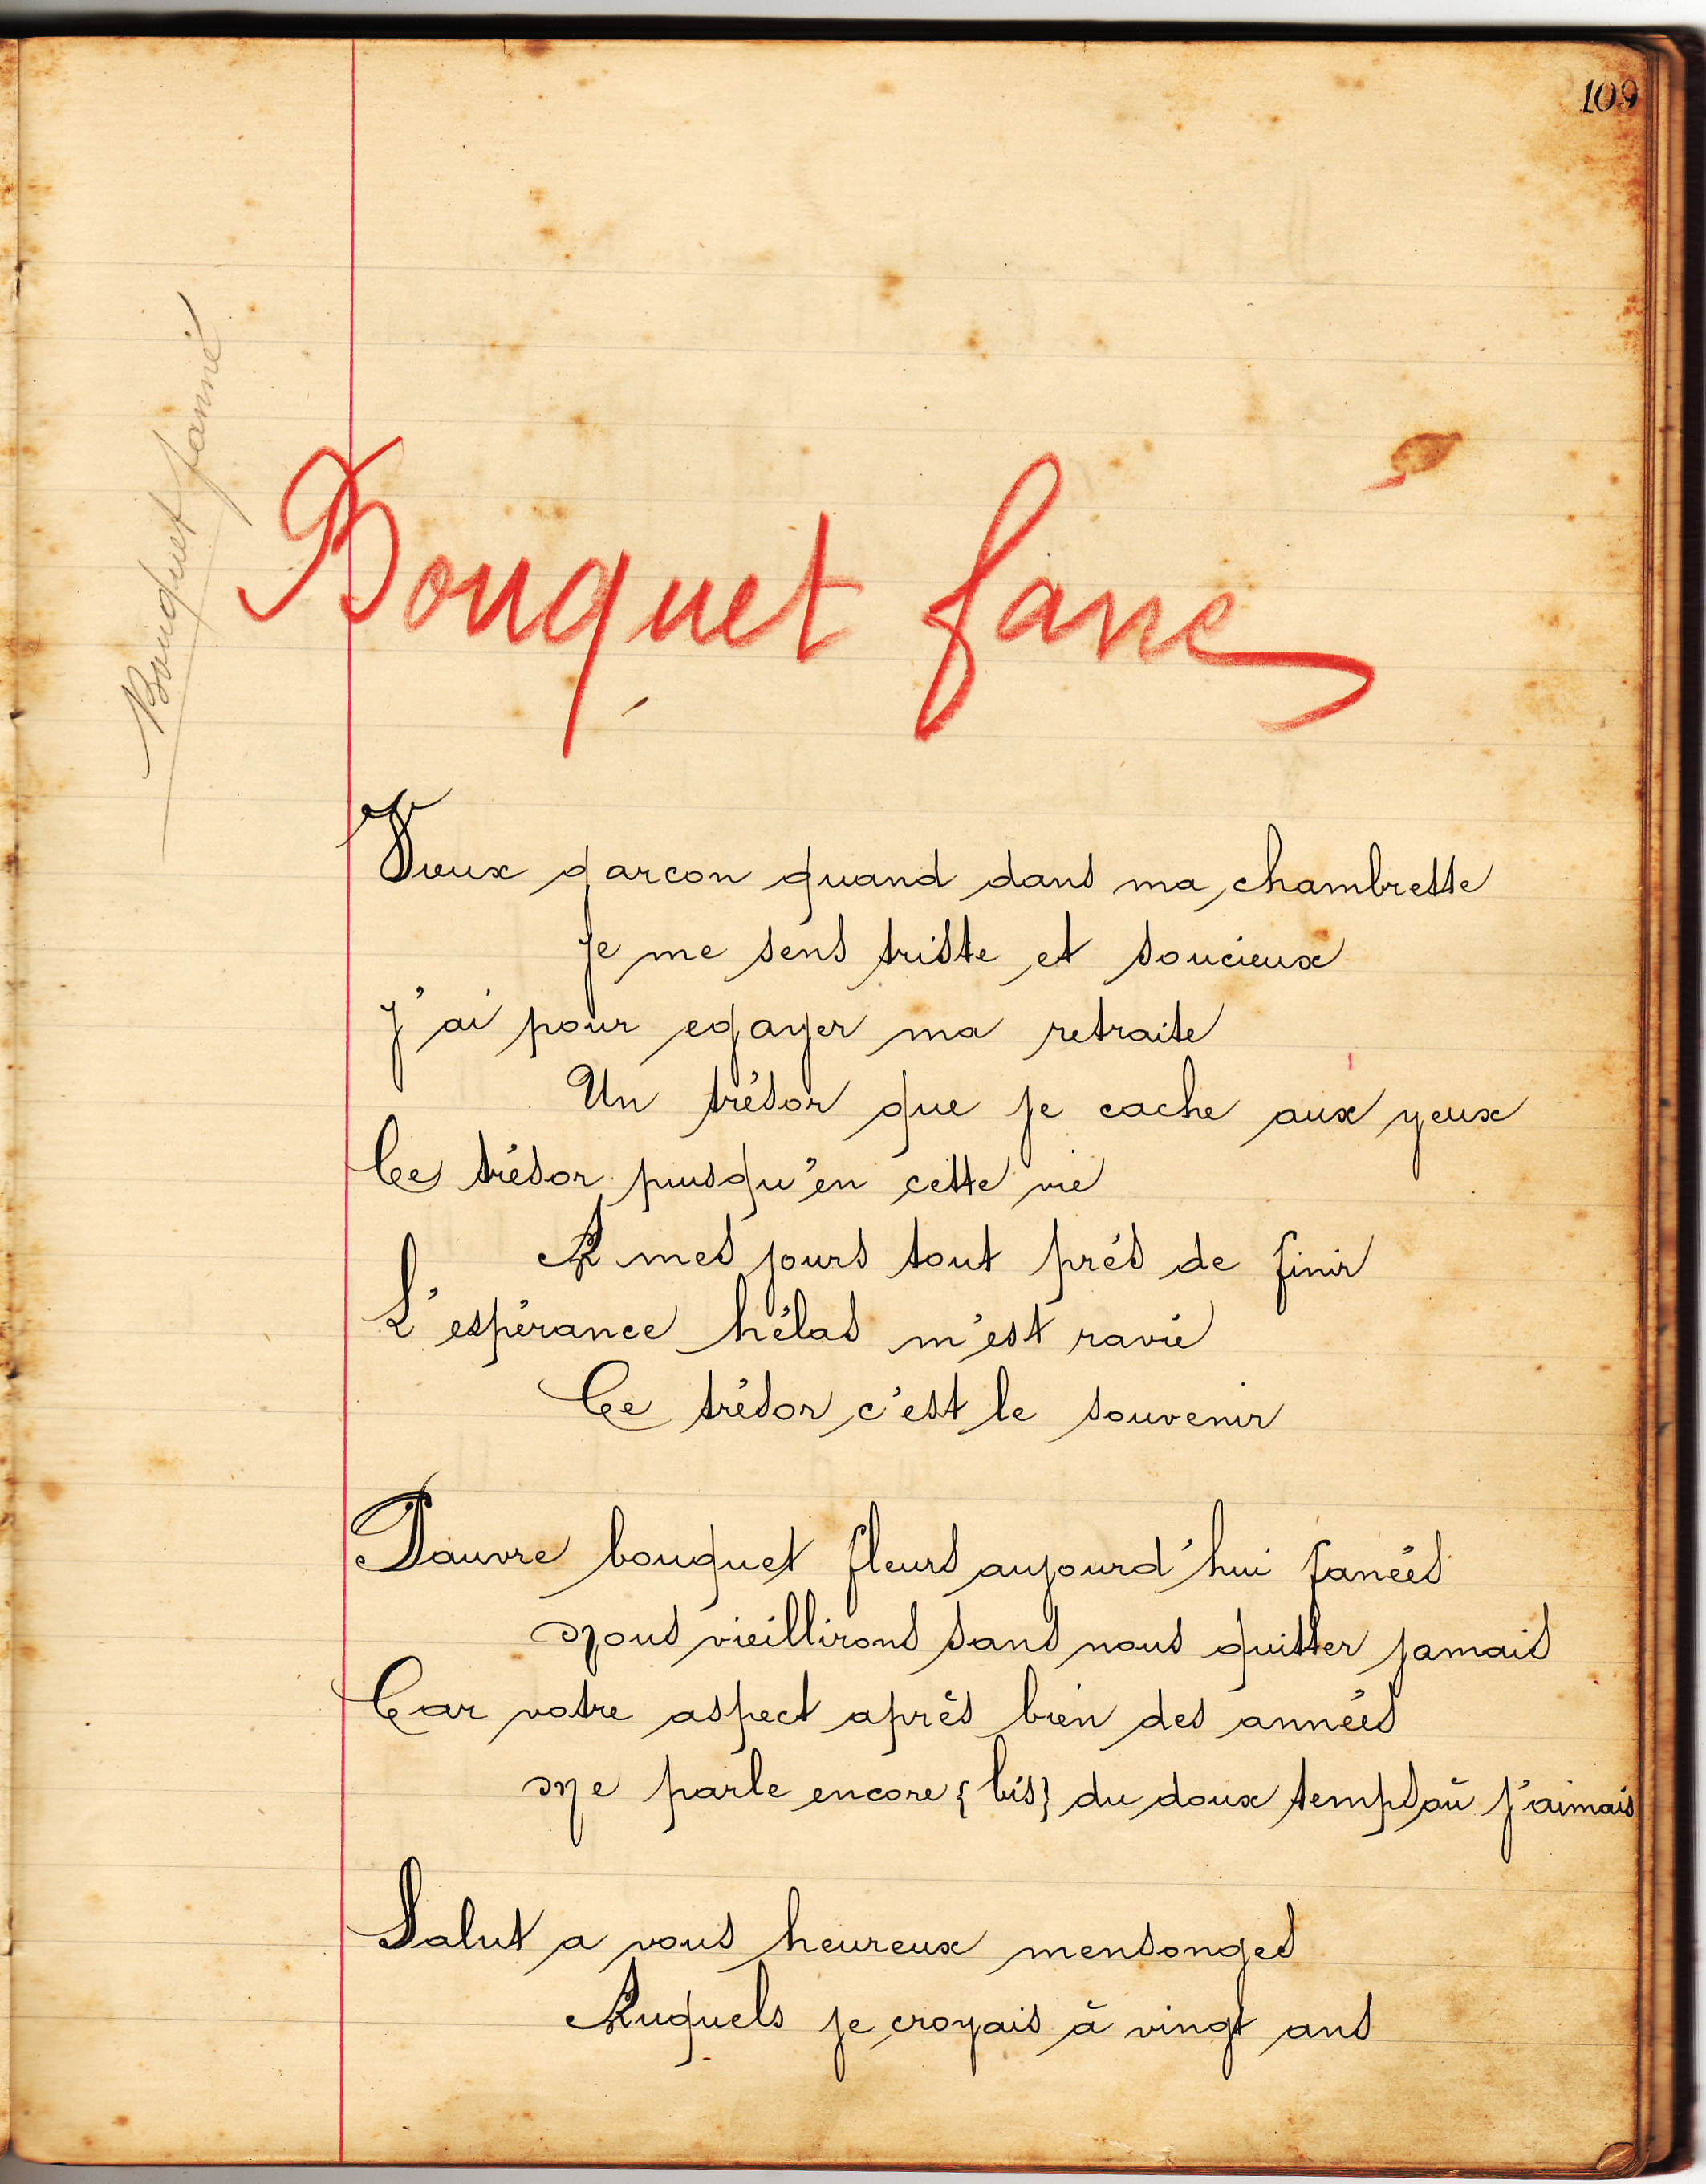 109
Bouquet fanné
Bouquet fané
Vieux garcon quand dans ma chambrette
je me sens triste et soucieux
j'ai pour egayer ma retraite
Un trésor que je cache aux yeux
Ce trésor puisqu'en cette vie
A mes jours tout prés de finir
L'espérance hélas m'est ravie
Ce trésor c'est le souvenir
Pauvre bouquet fleurs aujourd'hui fanées
Nous vieillirons sans nous quitter jamais
Car votre aspect après bien des années
Me parle encore {bis} du doux temps où j'aimais
Salut a vous heureux mensonges
Auquels je croyais à vingt ans